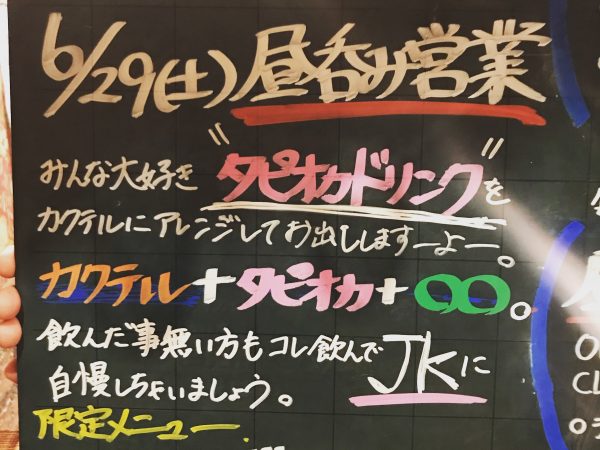 6/29(土)昼呑み営業
みんな大好き"タピオカドリンク"を
カクテルにアレンジしてお出ししますーよー。
カクテル+タピオカ+〇〇。
飲んだ事無い方もコレ飲んでJKに
自慢しちゃいましょう。
限定メニュー